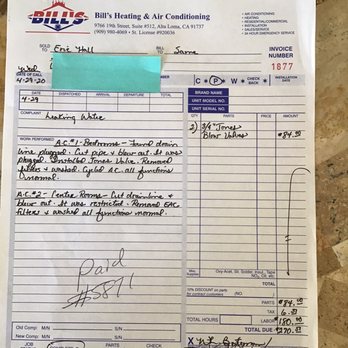 BILL'S
Bill's Heating & Air Conditioning
9766 19th Street, Suite #512, Alta Loma, CA 91737
(909) 980-4069 • St. License #920036
• AIR CONDITIONING
• HEATING
• RESIDENTIAL/COMMERCIAL
• INSTALLATION
• SALES/SERVICE
• 24 HOUR EMERGENCY SERVICE
SOLD TO Eric Hall
BILL TO Same
INVOICE NUMBER
1877
Wed
DATE OF CALL
4-29-20
C P W CHECK BACK
INSTALLATION DATE
DATE DISPATCHED ARRIVAL DEPARTURE TIME
4-29
BRAND NAME
UNIT MODEL NO.
UNIT SERIAL NO.
COMPLAINT
Leaking Water
2) 3/4" Jones $84.00
Blow Valves
WORK PERFORMED A.C. #1 - Bedrooms - Found drain
line plugged. Cut pipe & blew out. It was
plugged. Installed Jones Valve. Removed
filters & washed. Cycled AC. all functions
normal.
A.C. #2 - Center Rooms - Cut drainline &
blew out. It was restricted. Removed EAC
filters & washed all functions normal.
Paid
#5871
Oxy-Acet, Sil. Solder, Input, Tape
NO₂, Oil, etc.
10% DISCOUNT on parts
for contract customers
PARTS $84.00
TAX
TOTAL HOURS
LABOR $180.00
TOTAL DUE
Old Comp: M/N S/N
New Comp: M/N S/N
JOB
PARTS
CHECK
X